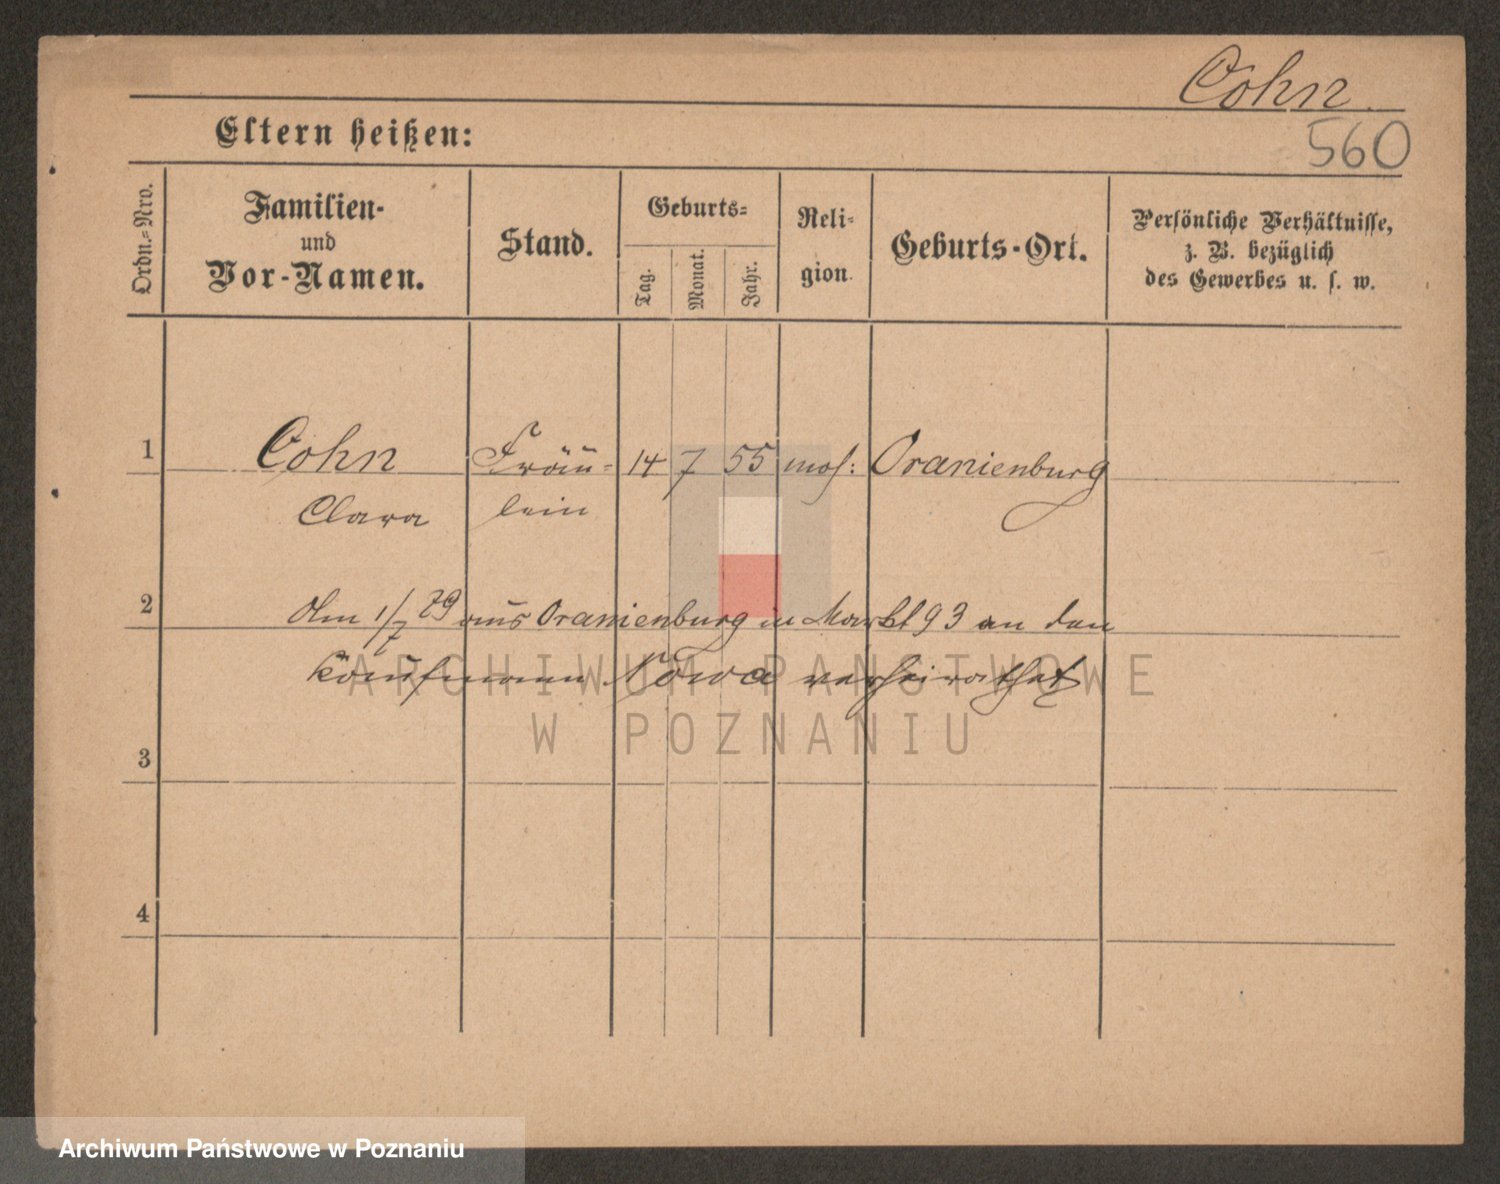 Cohn.
560
Eltern heißen:
Ordn.=Nro.
Familien-
und
Vor-Namen.
Stand.
Geburts=
Tag.
Monat.
Jahr.
Reli-
gion.
Geburts-Ort.
Persönliche Verhältnisse,
z. B. bezüglich
des Gewerbes u. s. w.
1 Cohn Fräu= 14 7 55 mos: Oranienburg
Clara lein
2 Am 1/7 79 aus Oranienburg in Markt 93 an den
Kaufmann Nowa verheirathet
3
4
ARCHIWUM PAŃSTWOWE
W POZNANIU
Archiwum Państwowe w Poznaniu